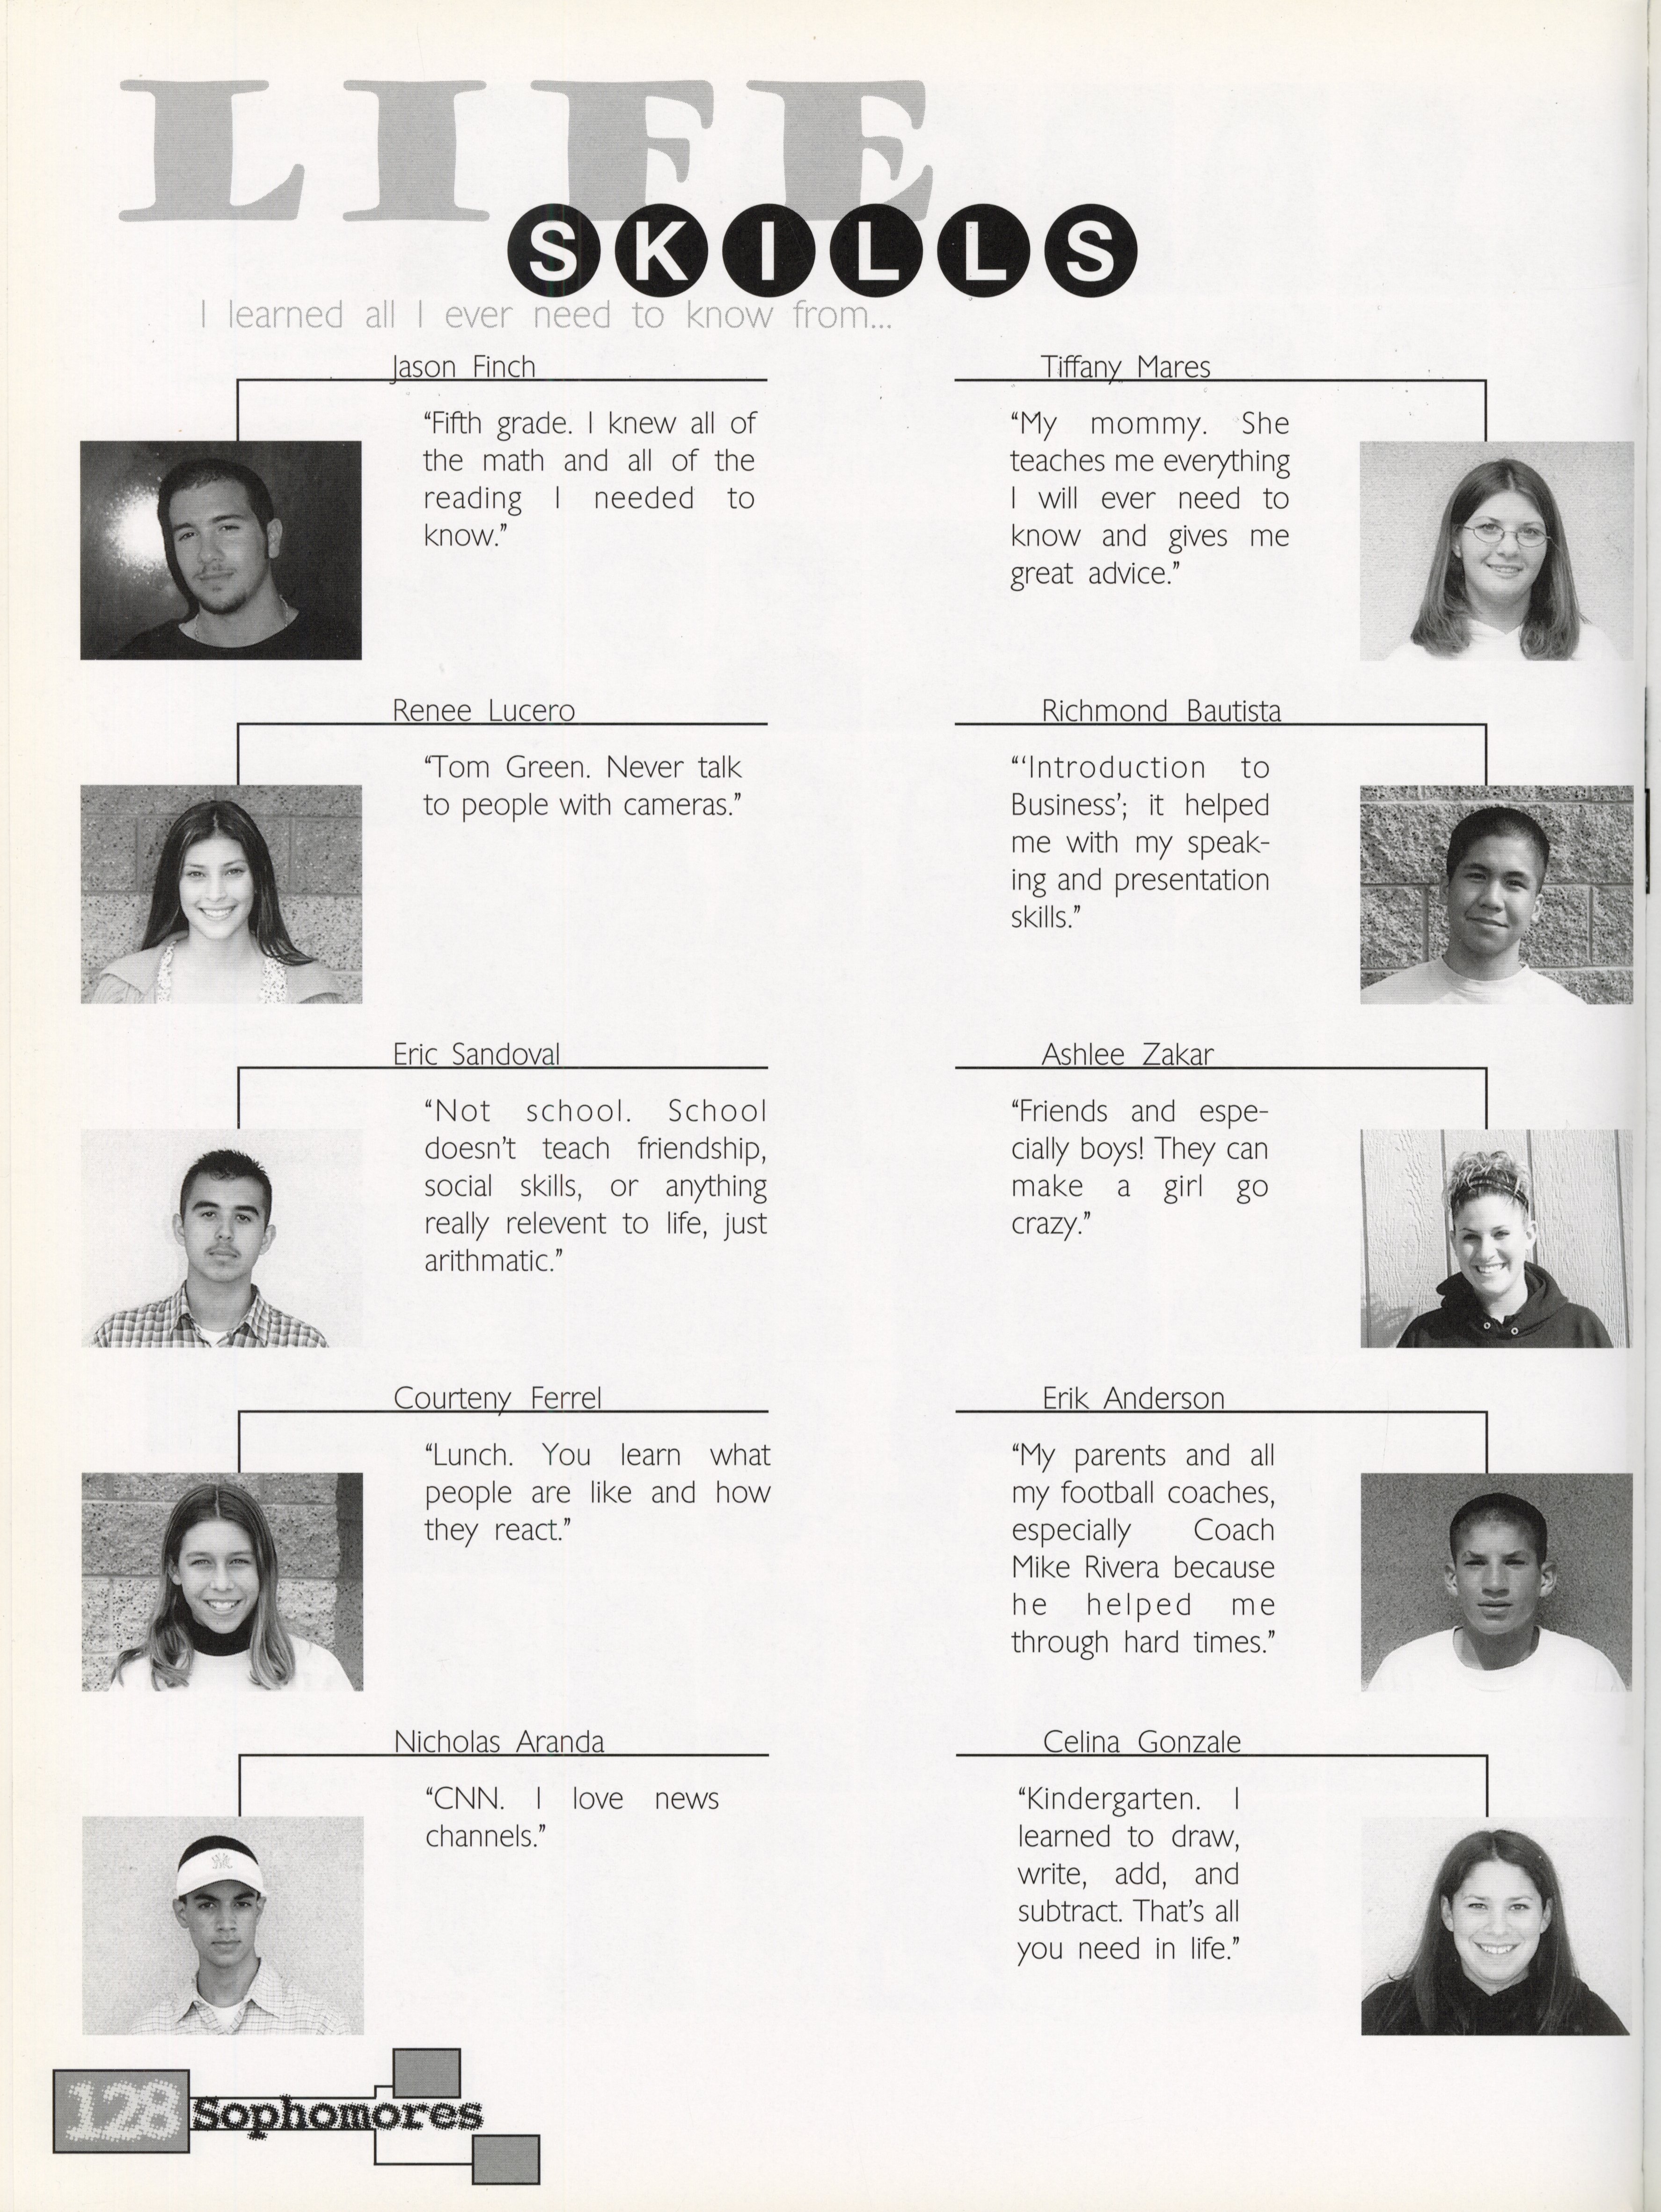 LIFE
SKILLS
I learned all I ever need to know from...
Jason Finch
“Fifth grade. I knew all of
the math and all of the
reading I needed to
know.”
Renee Lucero
“Tom Green. Never talk
to people with cameras.”
Eric Sandoval
“Not school. School
doesn’t teach friendship,
social skills, or anything
really relevent to life, just
arithmatic.”
Courteny Ferrel
“Lunch. You learn what
people are like and how
they react.”
Nicholas Aranda
“CNN. I love news
channels.”
Tiffany Mares
“My mommy. She
teaches me everything
I will ever need to
know and gives me
great advice.”
Richmond Bautista
“‘Introduction to
Business’; it helped
me with my speak-
ing and presentation
skills.”
Ashlee Zakar
“Friends and espe-
cially boys! They can
make a girl go
crazy.”
Erik Anderson
“My parents and all
my football coaches,
especially Coach
Mike Rivera because
he helped me
through hard times.”
Celina Gonzale
“Kindergarten. I
learned to draw,
write, add, and
subtract. That’s all
you need in life.”
128 Sophomores